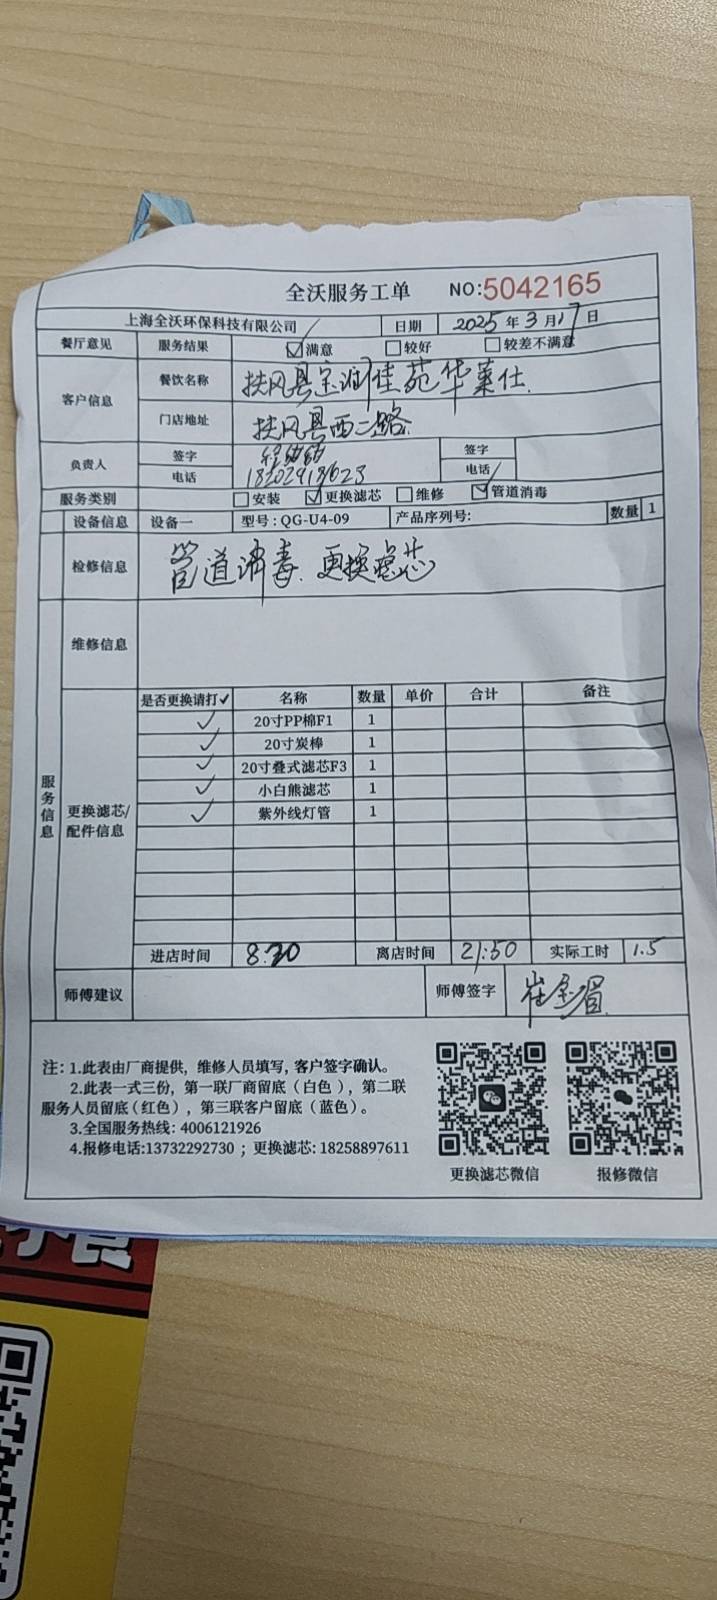 全沃服务工单 NO:5042165
上海全沃环保科技有限公司 日期 2025年3月17日
餐厅意见 服务结果 ☑满意 □较好 □较差不满意
客户信息 餐饮名称 扶风县宝润佳苑华莱仕
门店地址 扶风县西二路
负责人 签字 签字
电话 电话
服务类别 □安装 ☑更换滤芯 □维修 ☑管道消毒
设备信息 设备一 型号:QG-U4-09 产品序列号: 数量 1
检修信息 管道消毒.更换滤芯
维修信息
服务信息
更换滤芯/配件信息
是否更换请打✓ 名称 数量 单价 合计 备注
✓ 20寸PP棉F1 1
✓ 20寸炭棒 1
✓ 20寸叠式滤芯F3 1
✓ 小白熊滤芯 1
✓ 紫外线灯管 1
进店时间 离店时间 21:50 实际工时 1.5
师傅建议 师傅签字
注:1.此表由厂商提供,维修人员填写,客户签字确认。
2.此表一式三份,第一联厂商留底(白色),第二联
服务人员留底(红色),第三联客户留底(蓝色)。
3.全国服务热线:4006121926
4.报修电话:13732292730;更换滤芯:18258897611
更换滤芯微信 报修微信